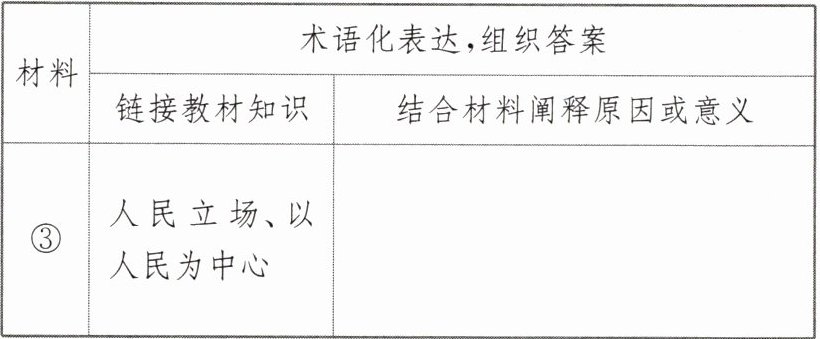 材料
术语化表达,组织答案
链接教材知识
结合材料阐释原因或意义
③
人民立场、以
人民为中心